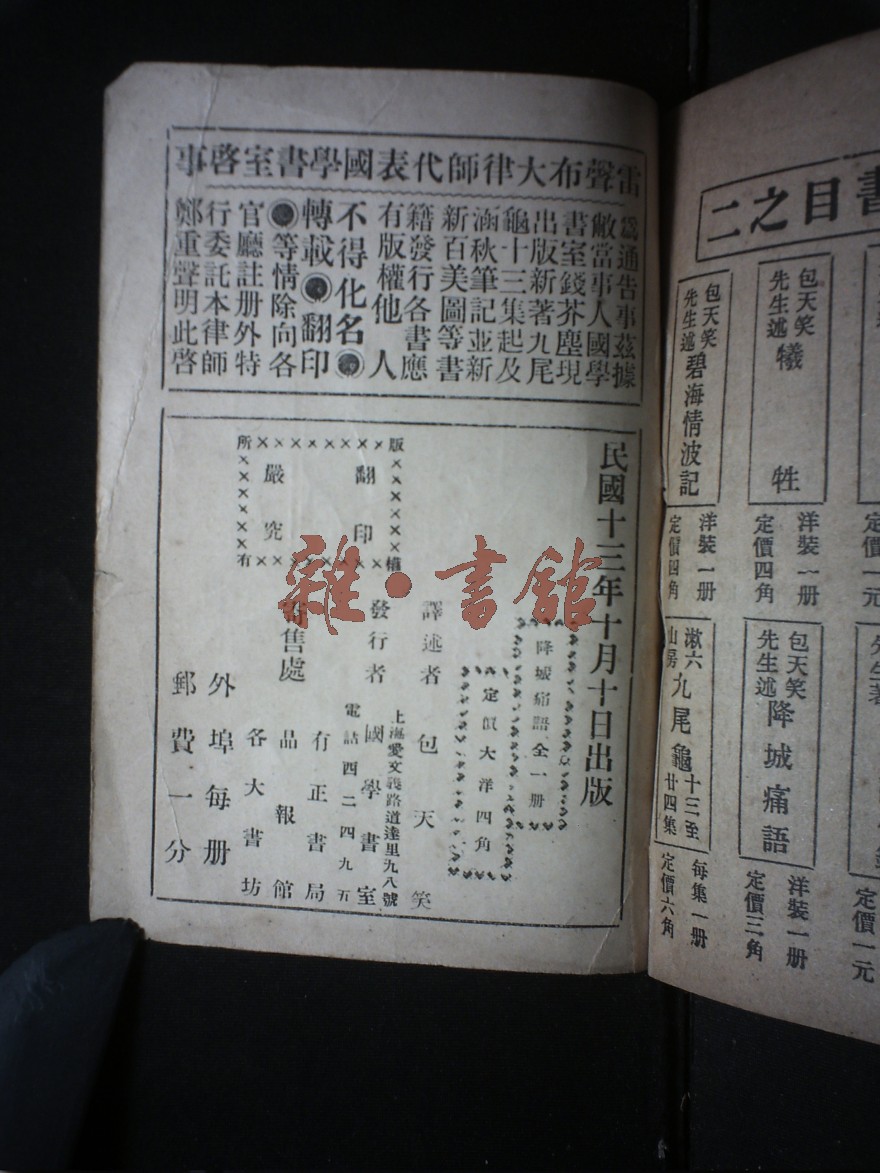 書目之二
包天笑
先生述
犧牲
洋裝一册
定價四角
包天笑
先生述
碧海情波記
洋裝一册
定價四角
定價一元
包天笑
先生述
降城痛語
洋裝一册
定價三角
漱六
山房
九尾龜
十三至
廿四集
每集一册
定價六角
定價一元
雷聲布大律師代表國學書室啓事
爲通告事茲據
敝當事人國學
書室錢芥塵現
出版新著九尾
龜十三集起及
涵秋筆記並新
新百美圖等書
籍發行各書應
有版權他人
不得化名◉
轉載◉翻印
◉等情除向各
官廳註册外特
行委託本律師
鄭重聲明此啓
民國十三年十月十日出版
降城痛語全一册
定價大洋四角
譯述者 包天笑
上海愛文義路道達里九八號
發行者 國學書室
電話四二四九五
有正書局
寄售處 品報館
各大書坊
外埠每册
郵費一分
版××××××權
×翻印×
×嚴究×
所××××××有
雜·書館